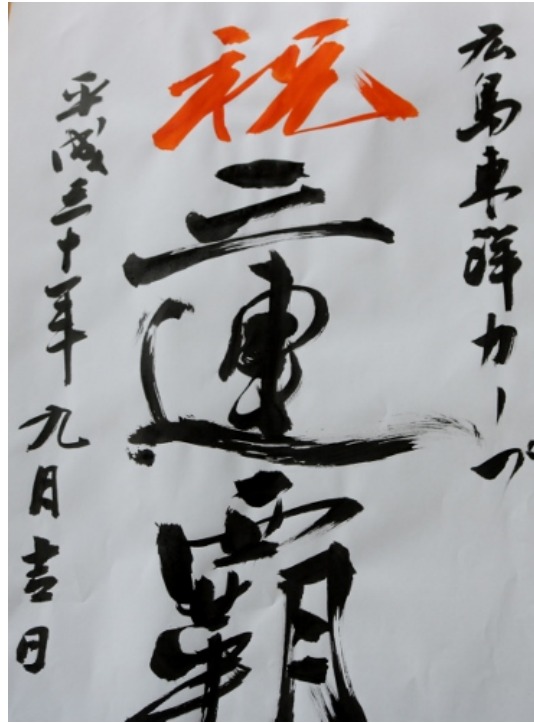 広島東洋カープ
祝三連覇
平成三十年九月吉日